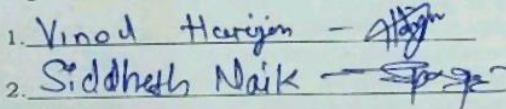 1. Vinod Harijan -
2. Siddhesh Naik -